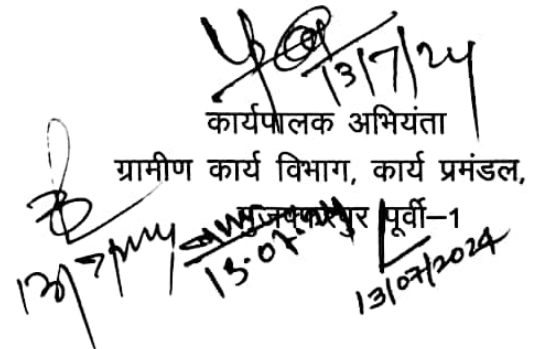 13/7/24
कार्यपालक अभियंता
ग्रामीण कार्य विभाग, कार्य प्रमंडल,
मुजफ्फरपुर पूर्वी–1
13.07.24
13/07/2024